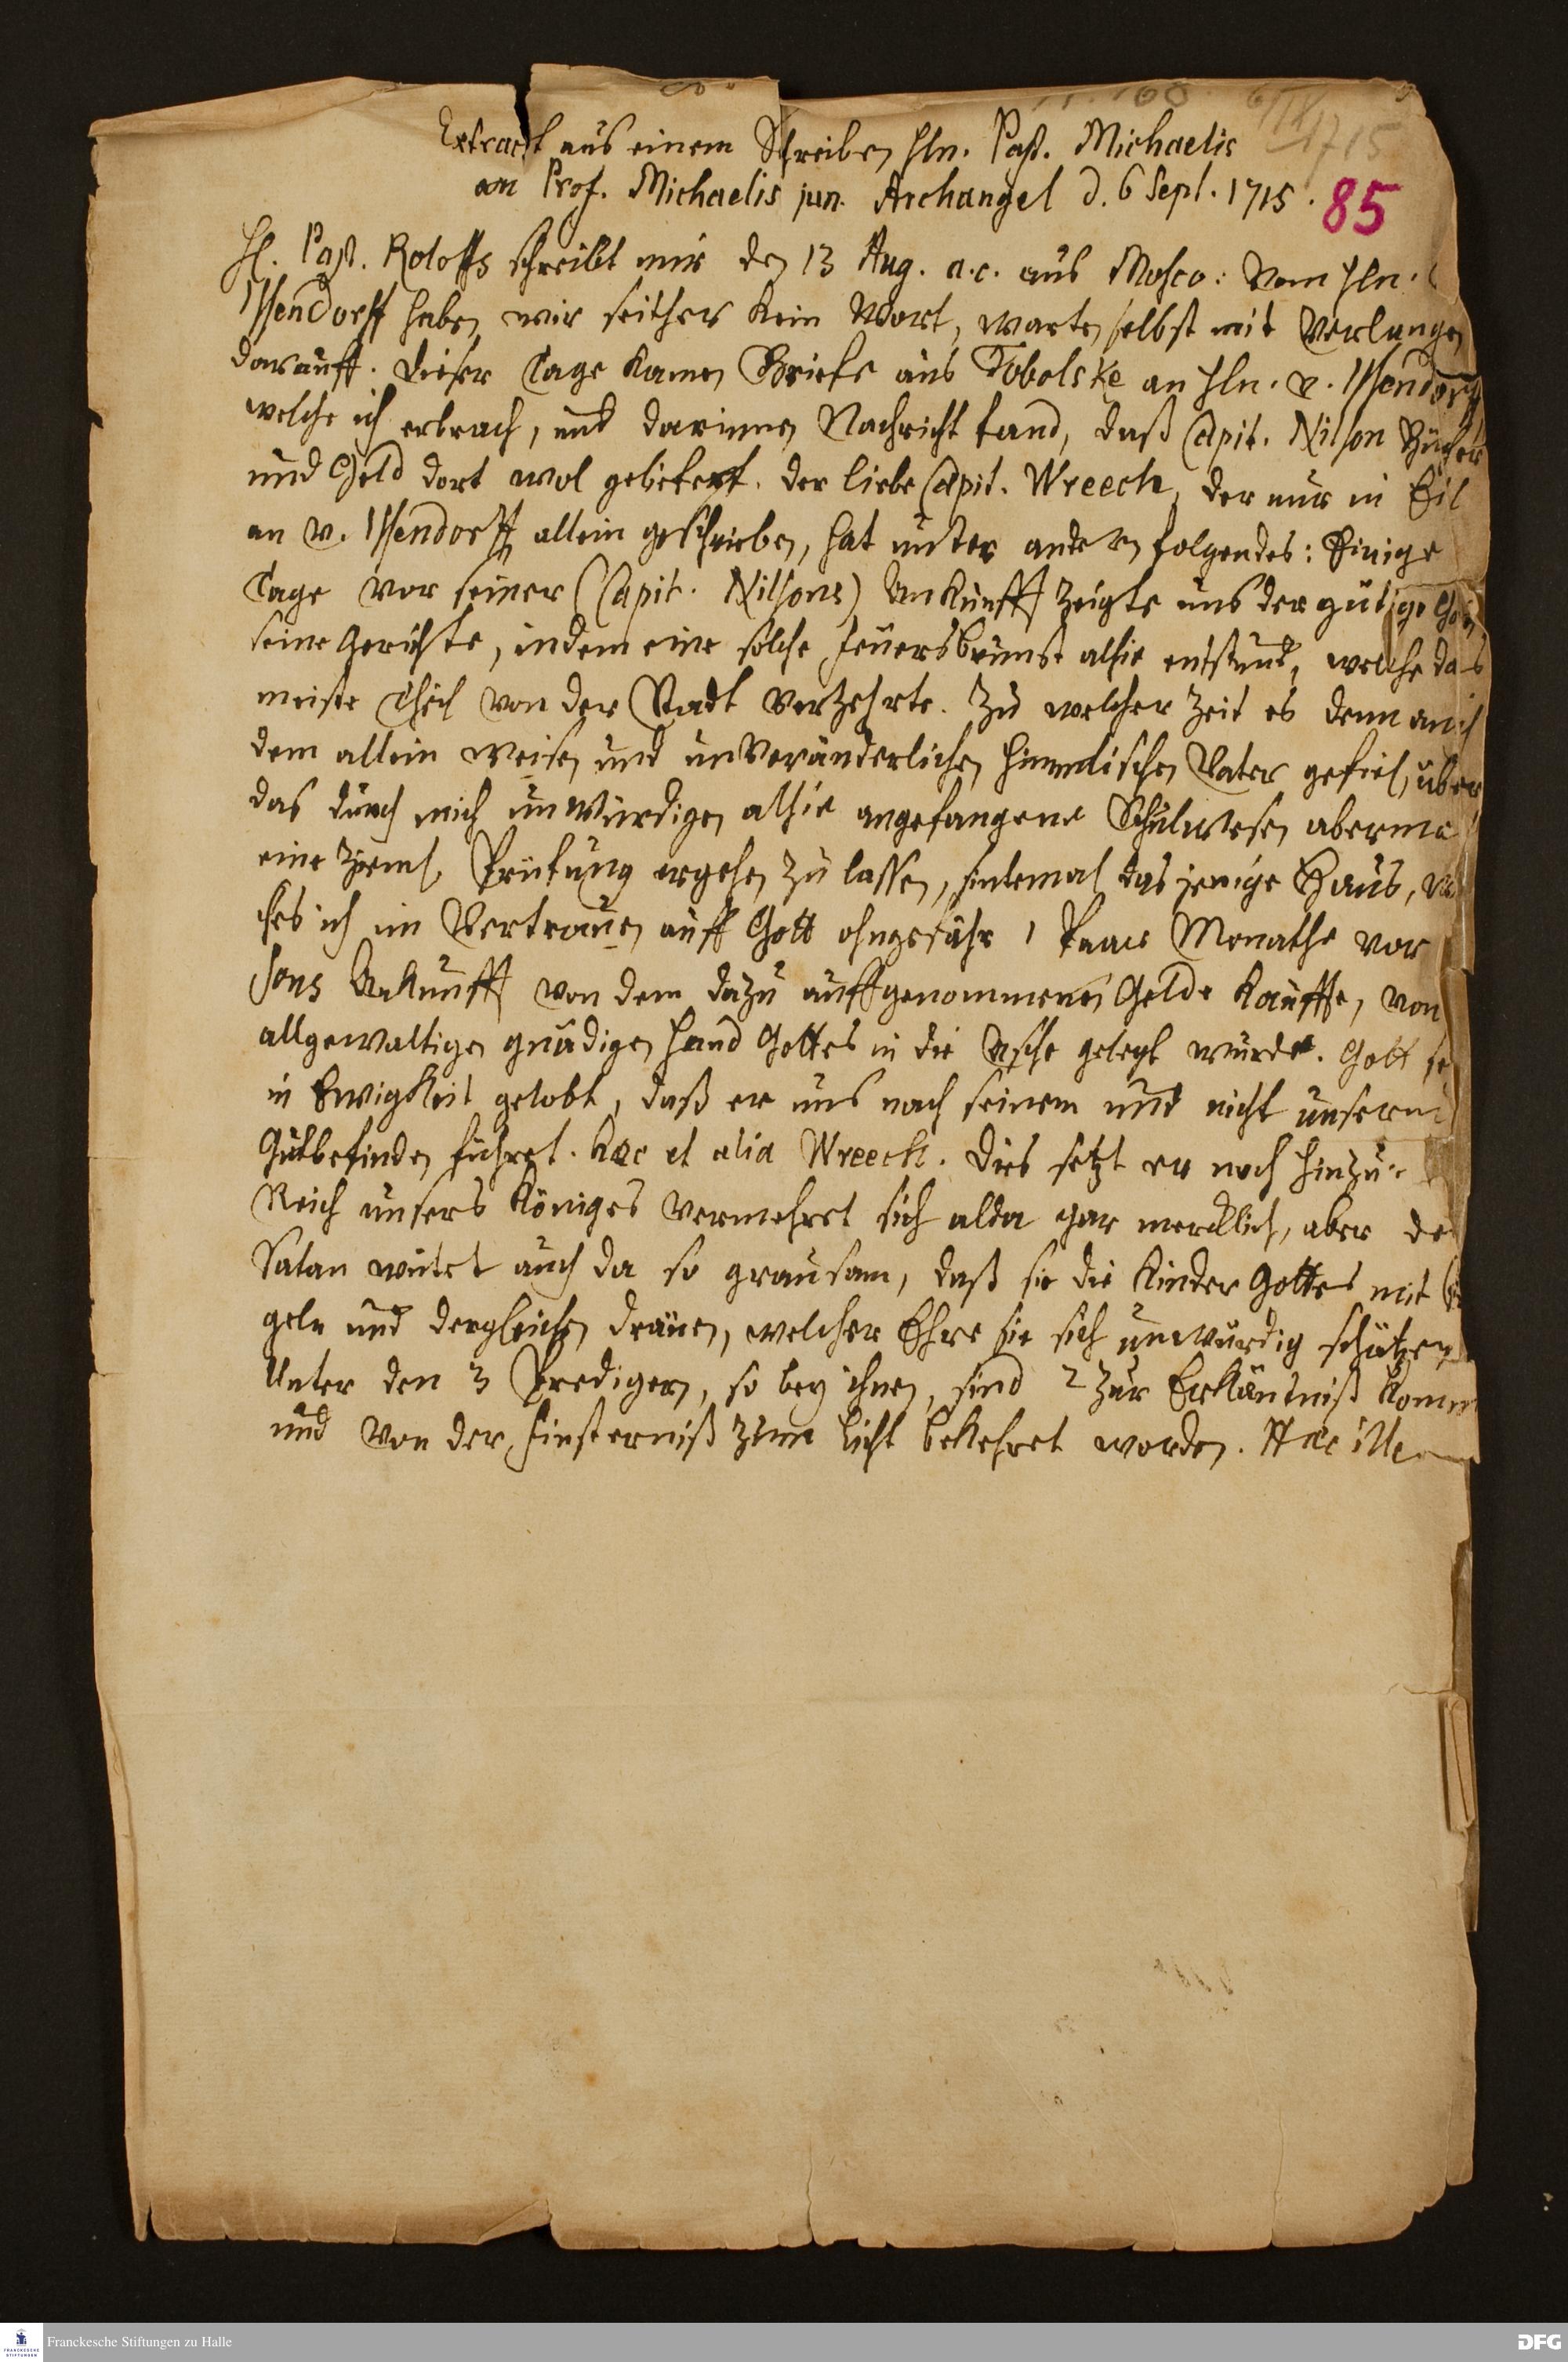 6/IX 1715
Extract aus einem Schreiben Hln. Past. Michaelis
an Prof. Michaelis jun. Archangel d. 6 Sept. 1715.
85
Hl. Past. Roloffs schreibt mir den 13 Aug. a.c. aus Mosco: Vom Hln.
Issendorff haben wir seither kein Wort, warten selbst mit Verlangen
darauff. Dieser Tage kamen Briefe aus Tobolske an Hln. v. Issendorff
welche ich erbrach, und darinnen Nachricht fand, daß Capit. Nilson Bücher
und Geld dort wol geliefert. Der liebe Capit. Wreech, der nur in Eil
an v. Issendorff allein geschrieben, hat unter andern folgendes: Einige
Tage vor seiner (Capit. Nilsons) Ankunfft zeigte uns der gütige Gott
seine Gerichte, indem eine solche Feuersbrunst alhie entstund, welche das
meiste Theil von der Stadt verzehrte. Zu welcher Zeit es denn auch
dem allein weisen und unveränderlichen himmlischen Vater gefiel, über
das durch mich unwürdigen alhie angefangene Schulwesen aberma
eine ziemL. Prüfung ergehen zu lassen, sintemal das jenige Haus, we
ches ich im Vertrauen auff Gott ohngefähr 1 Paar Monathe vor
sons Ankunfft von dem dazu auffgenommenen Gelde kauffte, von
allgewaltigen gnädigen Hand Gottes in die Asche gelegt wurde. Gott se
in Ewigkeit gelobt, daß er uns nach seinem und nicht unserm
Gutbefinden führet. Haec et alia Wreech. Dies setzt er noch hinzu:
Reich unsers Königes vermehret sich alda gar mercklich, aber de
Satan wütet auch da so grausam, daß sie die Kinder Gottes mit
geln und dergleichen dräuen, welcher Ehre sie sich unwürdig schätzen
Unter den 3 Predigern, so bey ihnen, sind 2 zur Erkäntniß komm
und von der Finsterniß zum Licht bekehret worden. Haec ille
Franckesche Stiftungen zu Halle
DFG